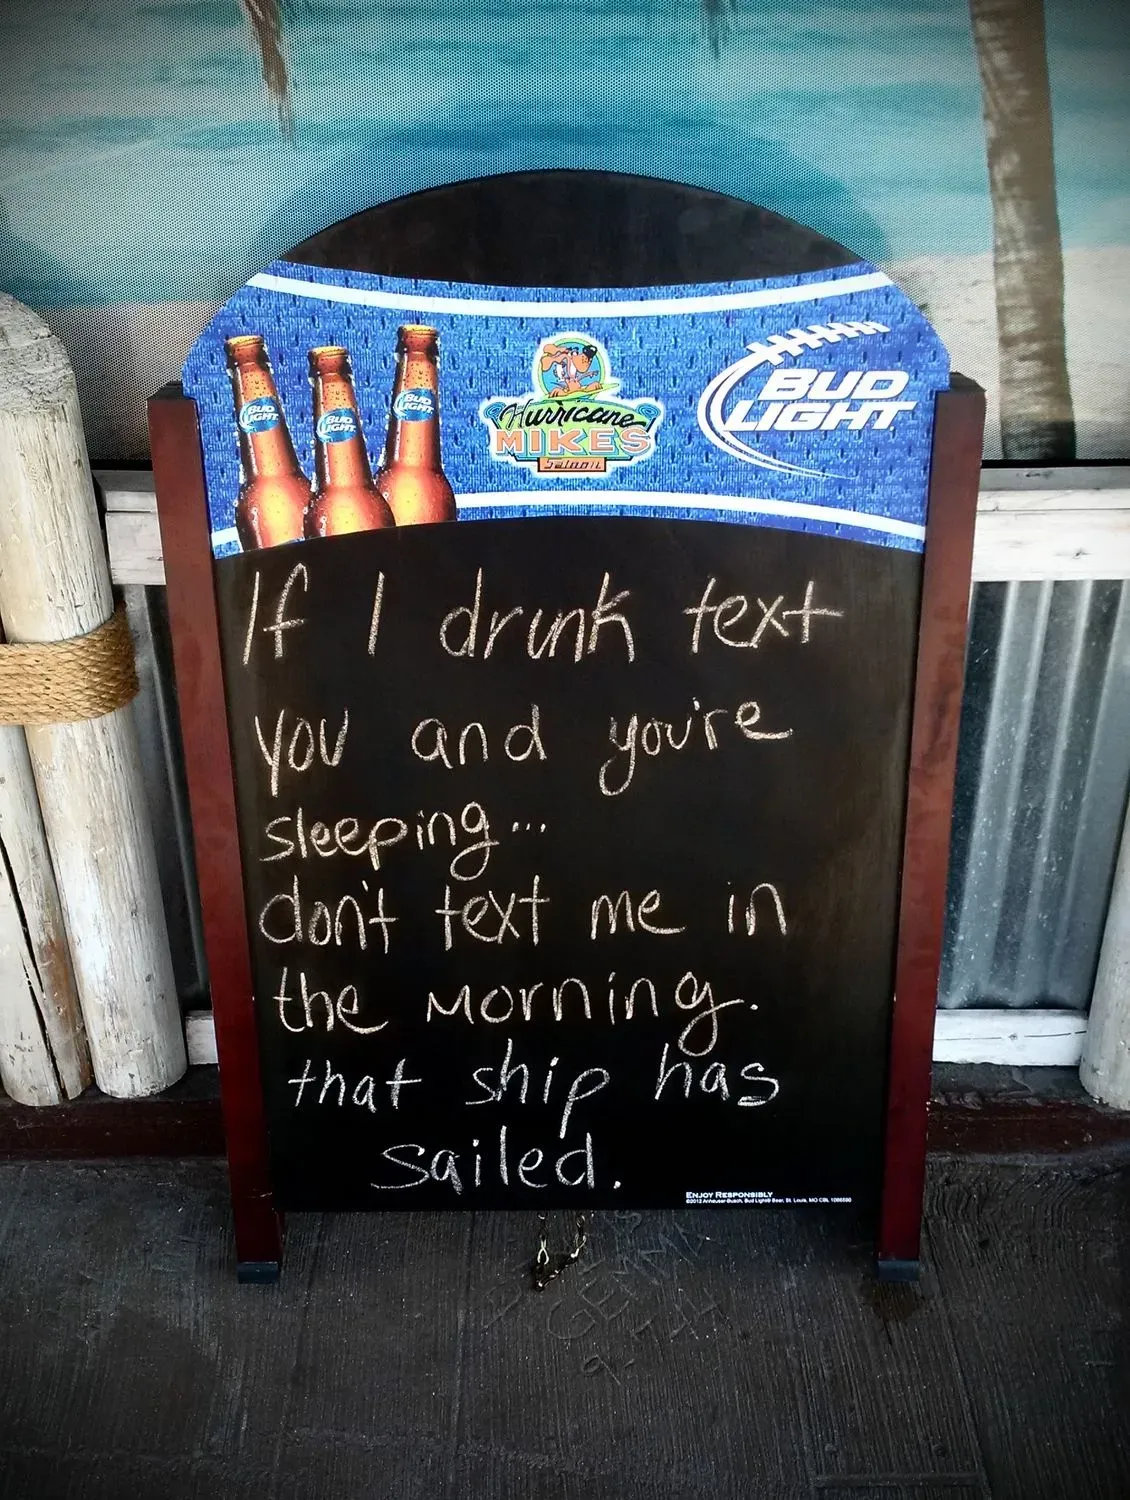 BUD LIGHT
BUD LIGHT
BUD LIGHT
Hurricane
MIKES
BUD
LIGHT
If I drunk text
you and you're
sleeping...
don't text me in
the morning.
that ship has
sailed.
ENJOY RESPONSIBLY
©2012 Anheuser-Busch, Bud Light® Beer, St. Louis, MO
GEMMA